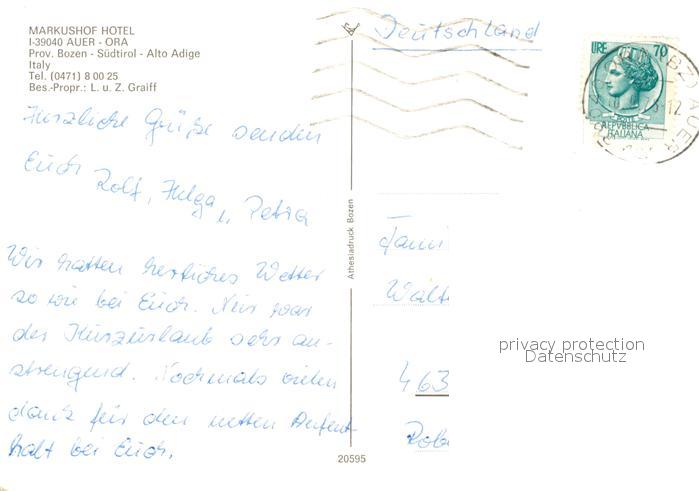 MARKUSHOF HOTEL
I-39040 AUER - ORA
Prov. Bozen - Südtirol - Alto Adige
Italy
Tel. (0471) 8 00 25
Bes.-Propr.: L. u. Z. Graiff
Herzliche Grüße senden
Euch Rolf, Helga u. Petra
Wir hatten herrliches Wetter
so wie bei Euch. Nur war
der Kurzurlaub sehr an-
strengend. Nochmals vielen
dank für den netten Aufent
halt bei Euch.
Athesiadruck Bozen
20595
Deutschland
LIRE 70
REPVBBLICA
ITALIANA
Fami
Walt
463
Rob
privacy protection
Datenschutz